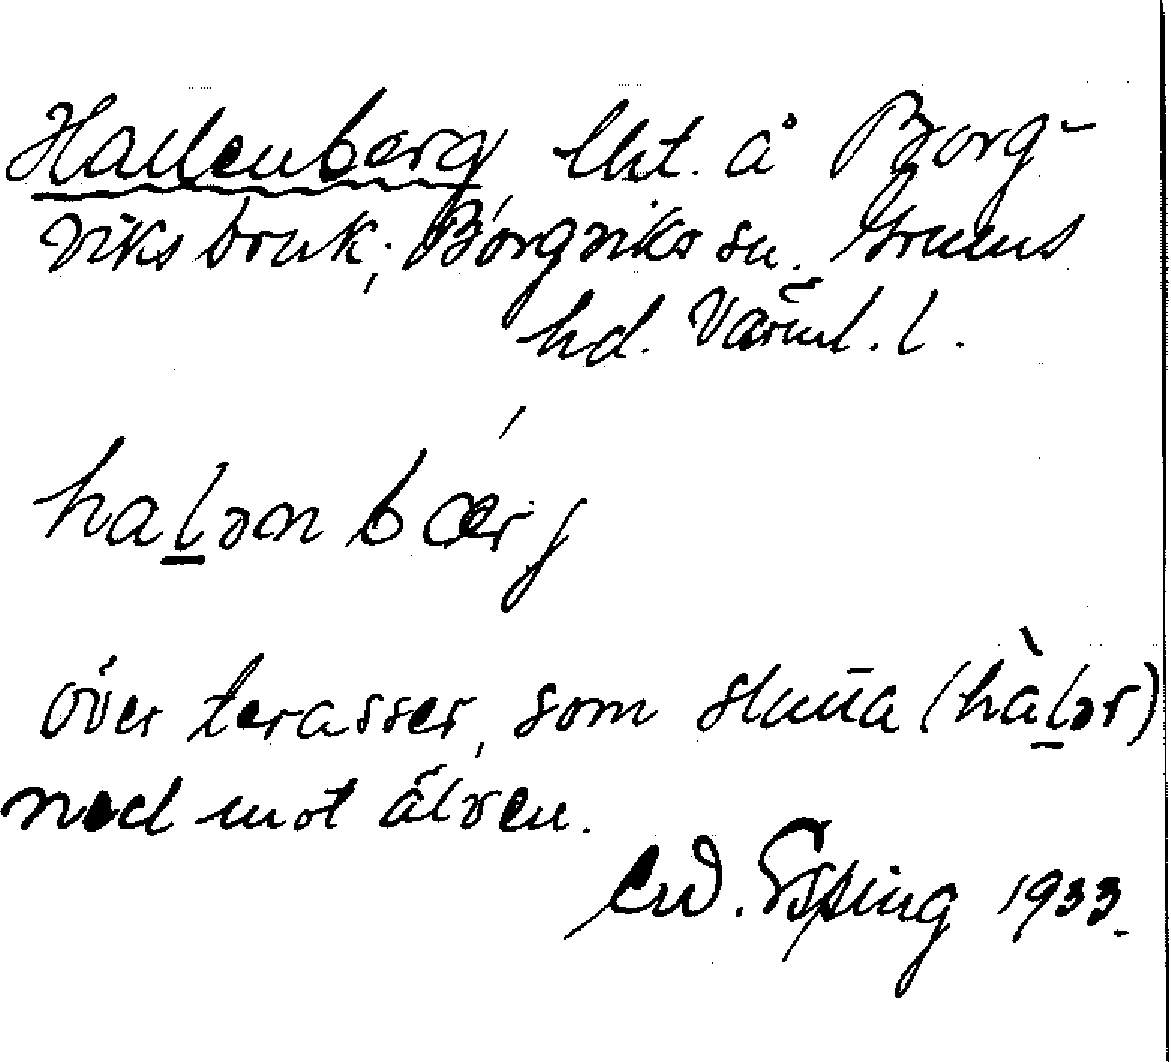 Hallenberg lht. å Borg-
viks bruk; Borgviks sn. Grums
hd. Värml. l.
halənbærj
över terasser, som slutta (hàlər)
ned mot älven.
Esping 1933.